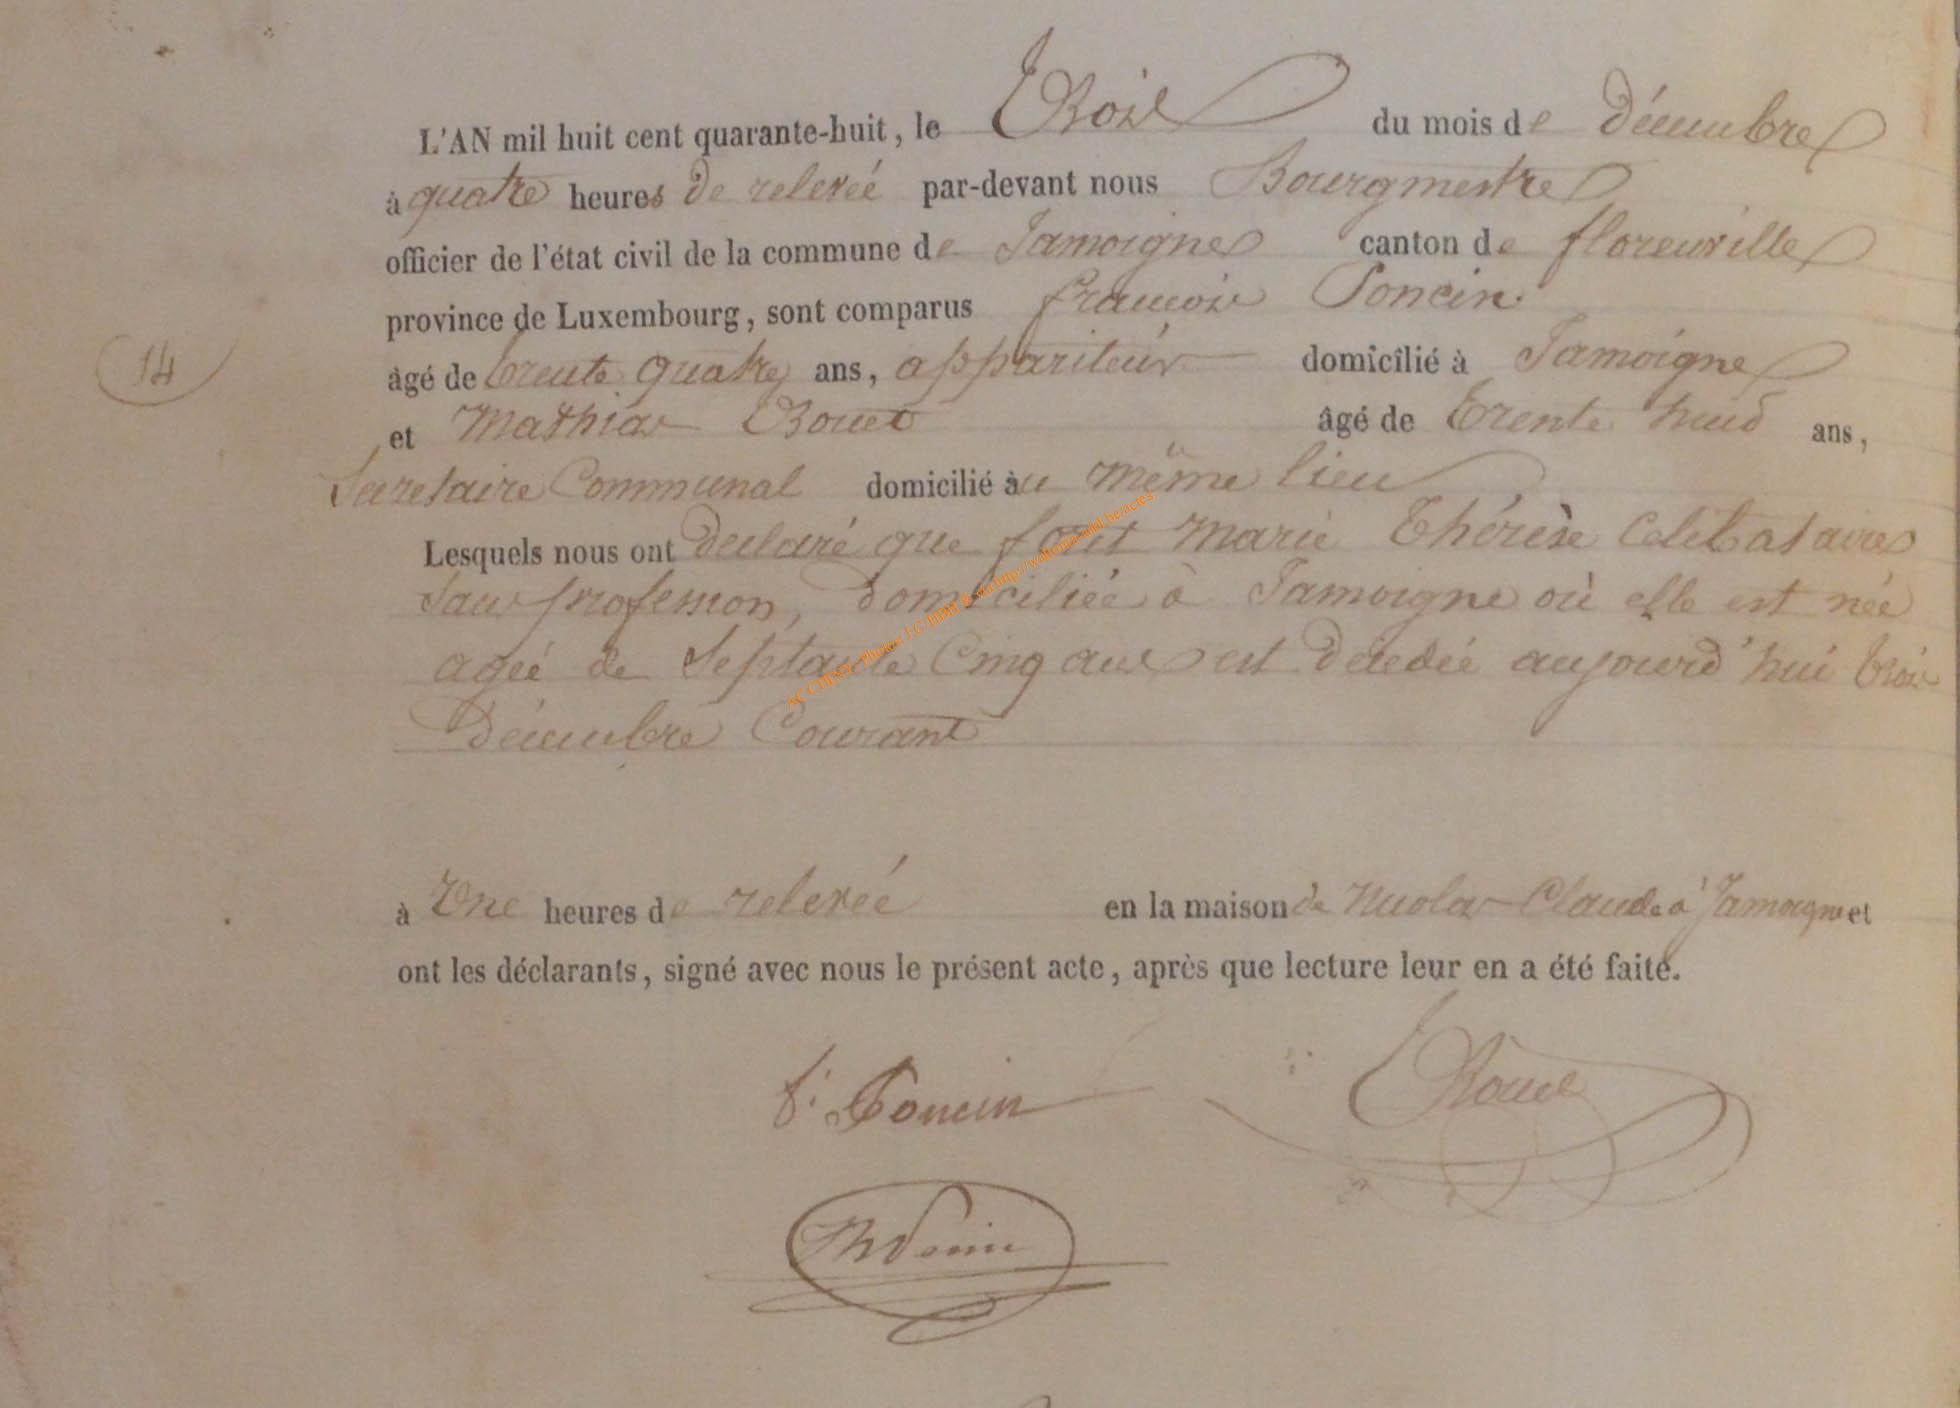 L'AN mil huit cent quarante-huit, le Trois du mois de décembre
à quatre heures de relevée par-devant nous Bourgmestre
officier de l'état civil de la commune de Jamoigne canton de florenville
province de Luxembourg, sont comparus francois Poncin
14
âgé de trente quatre ans, appariteur domicilié à Jamoigne
et Mathias âgé de trente huit ans,
Secretaire Communal domicilié àu même lieu
Lesquels nous ont declaré que Marie Thérèse Celibataire
sans profession, domiciliée à Jamoigne où elle est née
agée de Septante Cinq ans est décedée aujourd'hui trois
décembre Courant
à Une heures de relevée en la maison de Nicolas Claude à Jamoigne et
ont les déclarants, signé avec nous le présent acte, après que lecture leur en a été faite.
f. Poncin